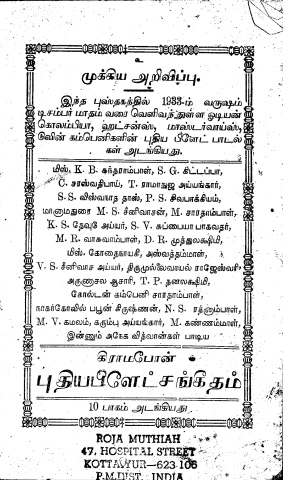 முக்கிய அறிவிப்பு.
இந்த புஸ்தகத்தில் 1933-ம் வருஷம்
டிசம்பர் மாதம் வரை வெளிவந்துள்ள ஓடியன்
கொலம்பியா, ஹட்சன்ஸ், மாஸ்டர்வாய்ஸ்,
டுவின் கம்பெனிகளின் புதிய பிளேட் பாடல்
கள் அடங்கியது.
மிஸ். K. B. சுந்தராம்பாள், S. G. கிட்டப்பா,
C. சரஸ்வதிபாய், T. ராமாநுஜ அய்யங்கார்,
S.S. விஸ்வநாத தாஸ், P. S. சிவபாக்கியம்,
மானாமதுரை M. S. சீனிவாசன், M. சாரதாம்பாள்,
K. S. தேவுசே அய்யர், S. V. சுப்பையா பாகவதர்,
M. R. வாசுவாம்பாள், D. R. முத்துலக்ஷிமி,
மிஸ். கோதைநாயகி, அஸ்வத்தம்மாள்,
V. S. சீனிவாச அய்யர், திருமுல்லைவாயல் ராஜேஸ்வரி
அருணாசல ஆசாரி, T. P. தனலக்ஷிமி,
கோல்டன் கம்பெனி சாரதாம்பாள்,
நாகர்கோவில் பபூன் சிருஷ்ணன், N.S. ரத்னம்பாள்,
M. V. கமலம், கரும்பு அய்யங்கார், M. கண்ணம்மாள்,
இன்னும் அநேக வித்வான்கள் பாடிய
கிராமபோன்
புதியபிளேட்சங்கீதம்
10 பாகம் அடங்கியது.
ROJA MUTHIAH
47, HOSPITAL STREET
KOTTAYUR-623 106
P.M.DIST. INDIA